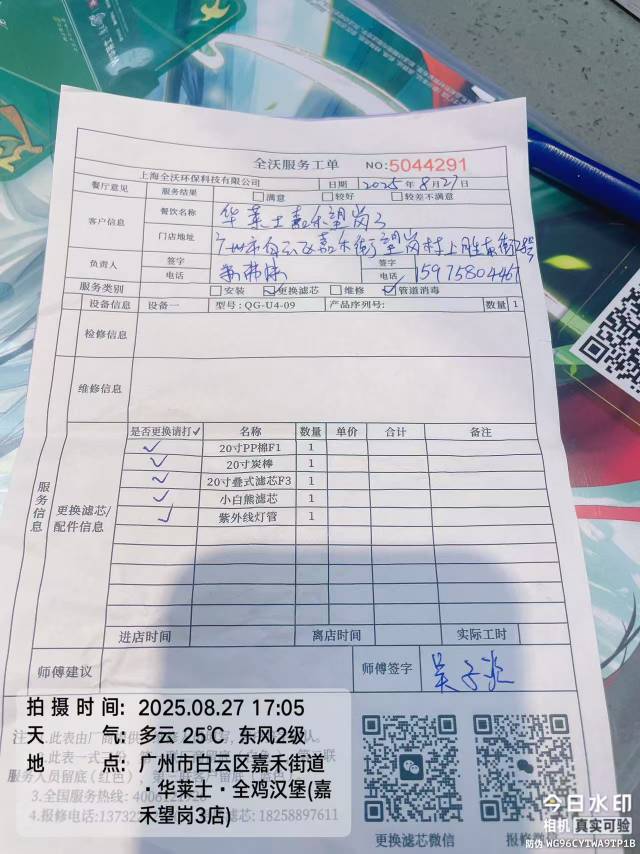 全沃服务工单 NO:5044291
上海全沃环保科技有限公司 日期 2025年8月27日
餐厅意见 服务结果 满意 较好 较差不满意
客户信息 餐饮名称 华莱士嘉禾望岗3
门店地址 广州市白云区嘉禾街望岗村上胜东街
负责人 签字 签字
电话 电话
服务类别 安装 更换滤芯 维修 管道消毒
设备信息 设备一 型号:QG-U4-09 产品序列号: 数量 1
检修信息
维修信息
服务信息
更换滤芯/配件信息
是否更换请打✓ 名称 数量 单价 合计 备注
✓ 20寸PP棉F1 1
✓ 20寸炭棒 1
✓ 20寸叠式滤芯F3 1
✓ 小白熊滤芯 1
✓ 紫外线灯管 1
进店时间 离店时间 实际工时
师傅建议 师傅签字
拍摄时间: 2025.08.27 17:05
天气: 多云 25℃ 东风2级
地点: 广州市白云区嘉禾街道
·华莱士·全鸡汉堡(嘉
禾望岗3店)
服务人员留底(红色)
3.全国服务热线:
4.报修电话: 滤芯:18258897611
更换滤芯微信 报修微信
今日水印
相机 真实可验
防伪 WG96CYTWA9TP1B